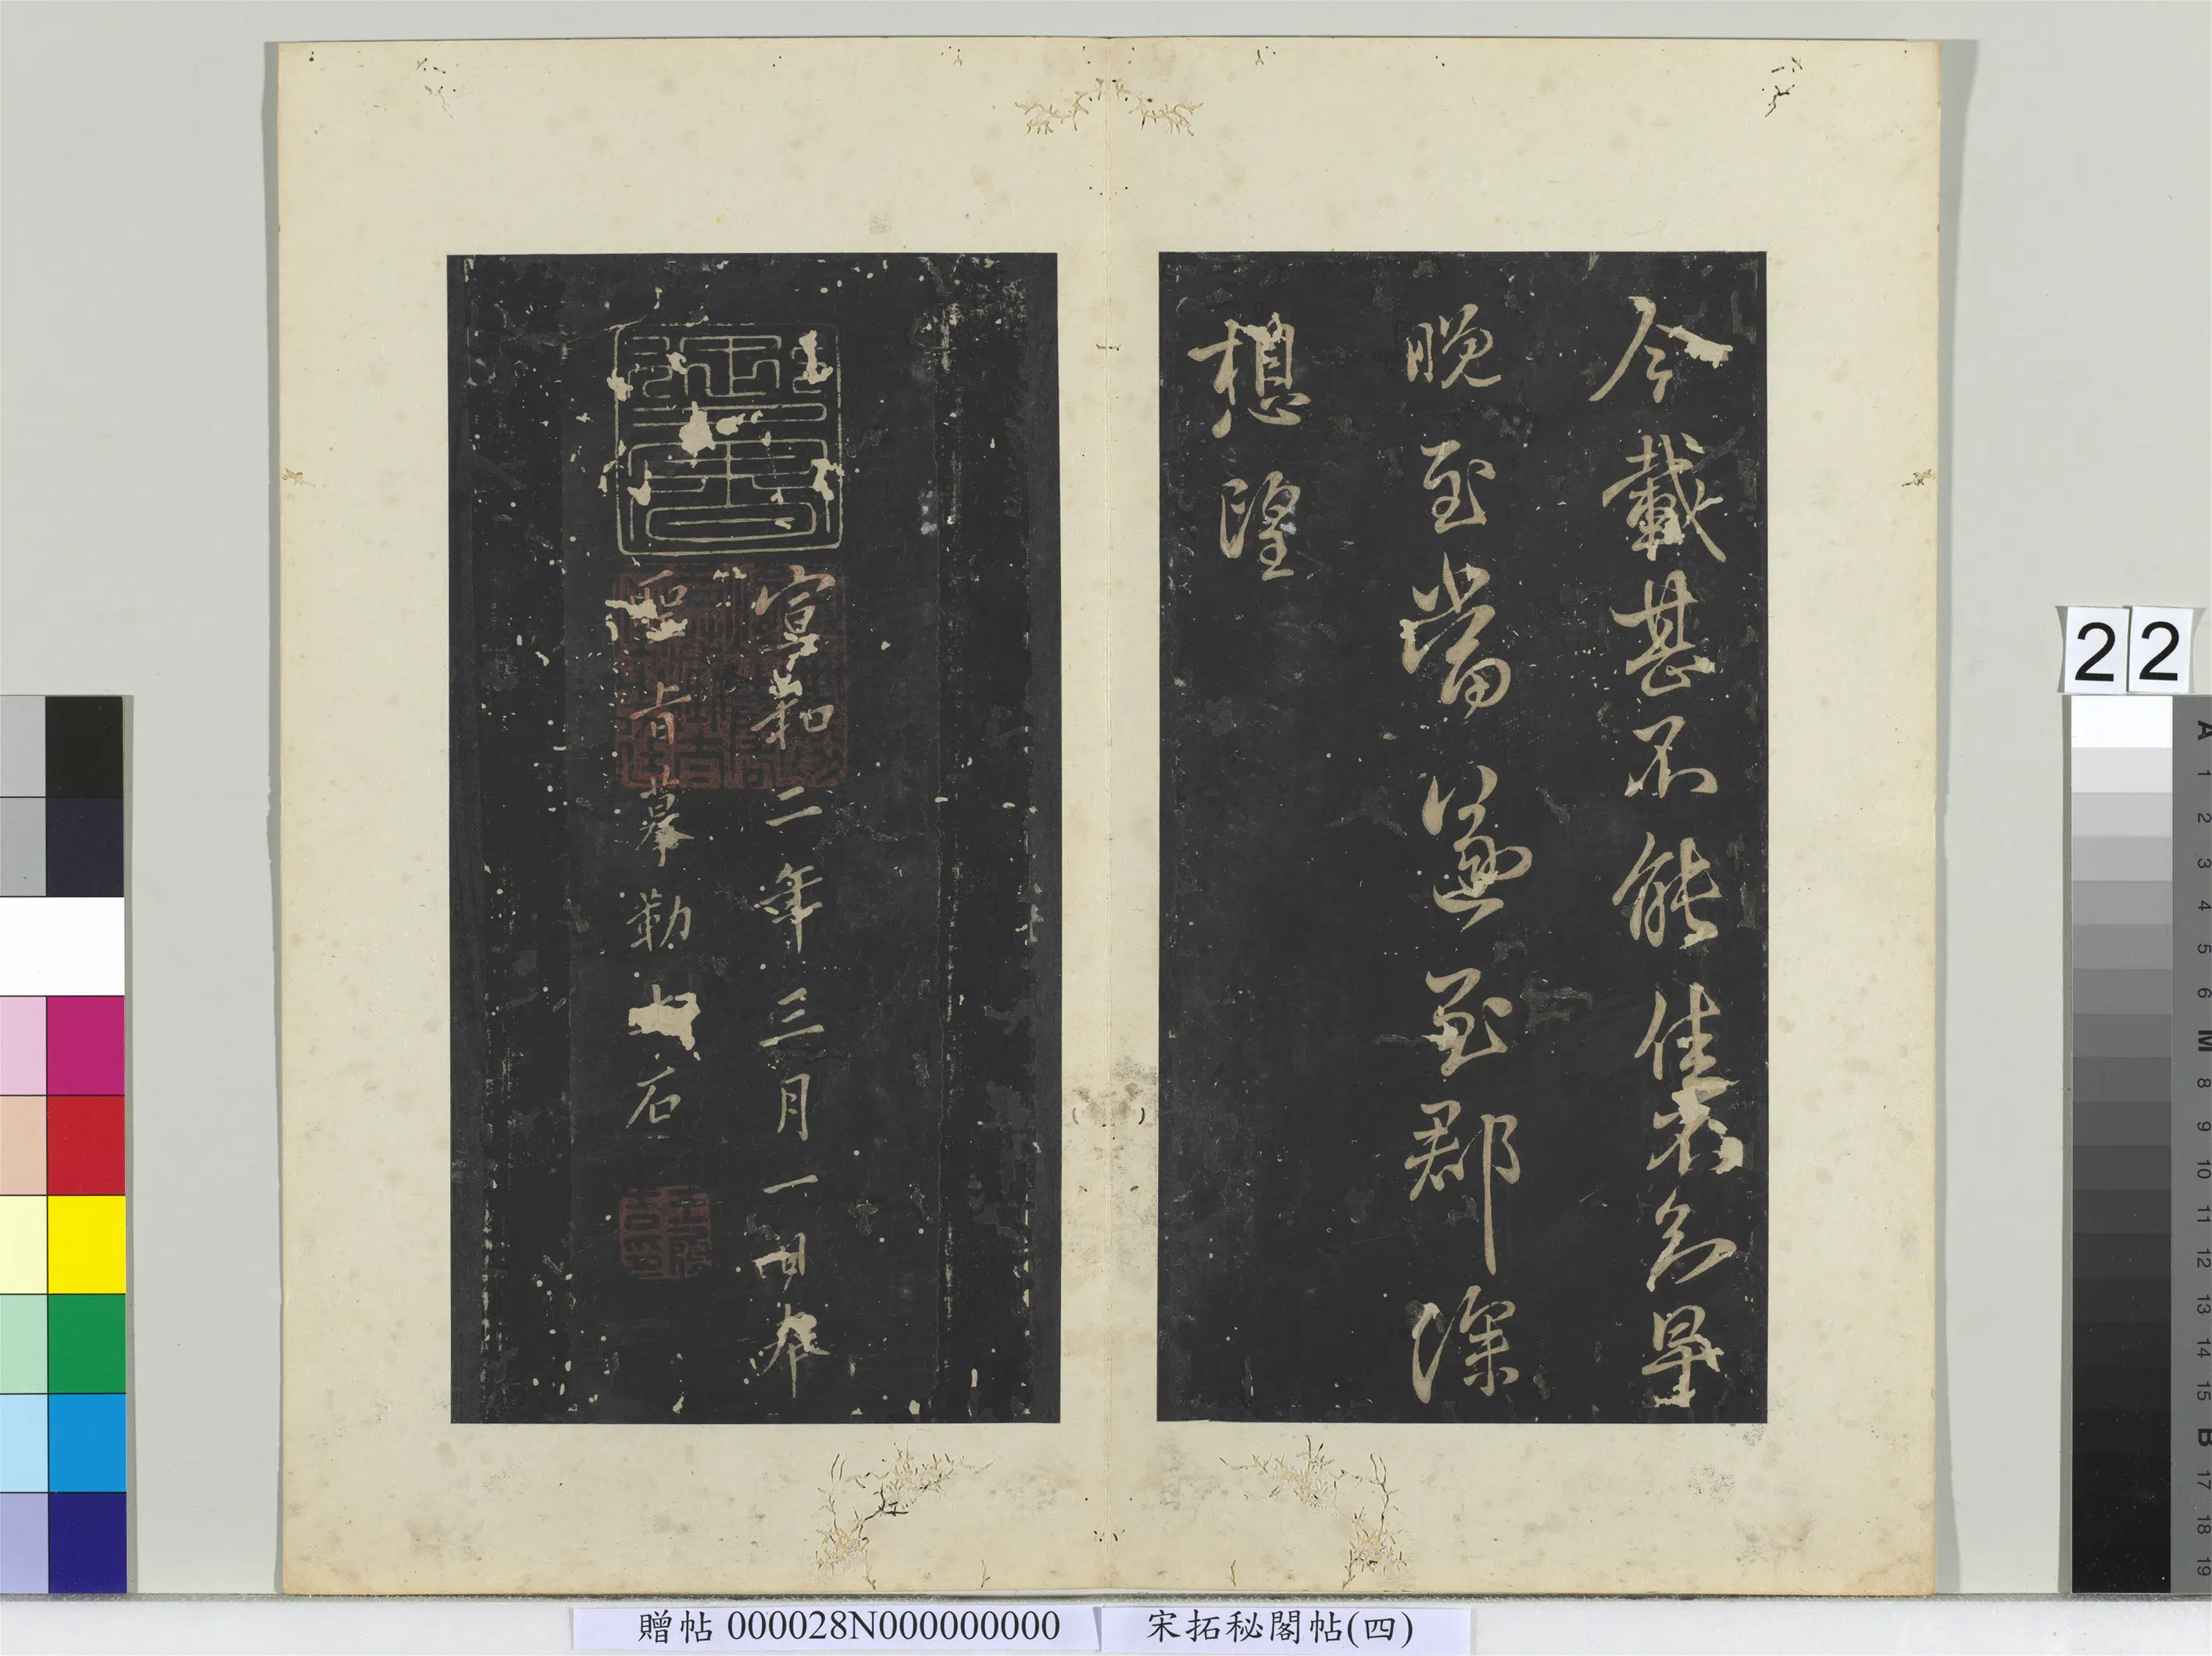 今載甚不能佳衰知早
晚至當遂至郡深
想望
宣和二年三月一日奉
聖旨摹勒上石
22
A 1 2 3 4 5 6 M 8 9 10 11 12 13 14 15 B 17 18 19
贈帖 000028N000000000
宋拓秘閣帖(四)